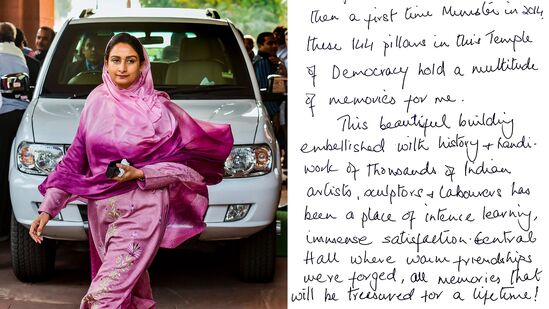 Then a first time Minister in 2014,
these 144 pillars in this Temple
of Democracy hold a multitude
of memories for me.
This beautiful building
embellished with history + handi-
work of thousands of Indian
artists, sculptors + Labourers has
been a place of intence learning,
immense satisfaction. Central
Hall where warm friendships
were forged, all memories that
will be treasured for a lifetime!